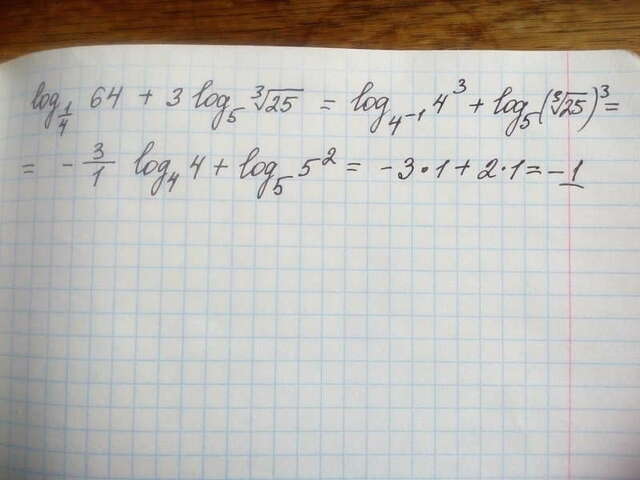 log_{1/4} 64 + 3 log_5 ∛25 = log_{4^{-1}} 4^3 + log_5 (∛25)^3 =
= - 3/1 log_4 4 + log_5 5^2 = -3·1 + 2·1 = -1